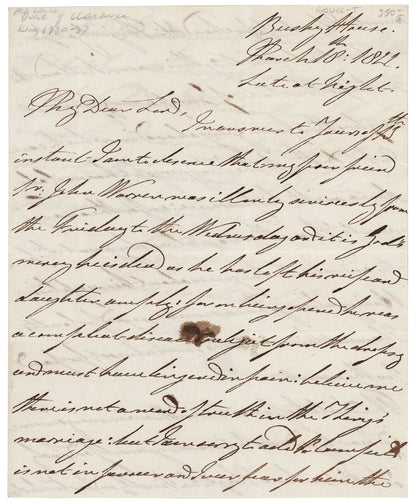 Duke of Clarence
King 1830-37
Bushy House.
March 18th: 1822.
Late at Night.
My Dear Lord,
In answer to Yours of
instant I am to observe that my poor friend
Sr. John Warren was ill only seriously from
the Friday to the Wednesday and it is God's
mercy he is dead as he has left his wife and
daughter amply: for on being opened he was
a compleat disease from the dropsy
and must have lingered in pain: believe me
there is not a word of truth in the Things
marriage: but I am sorry to add
is not in power and I ever fear for him the